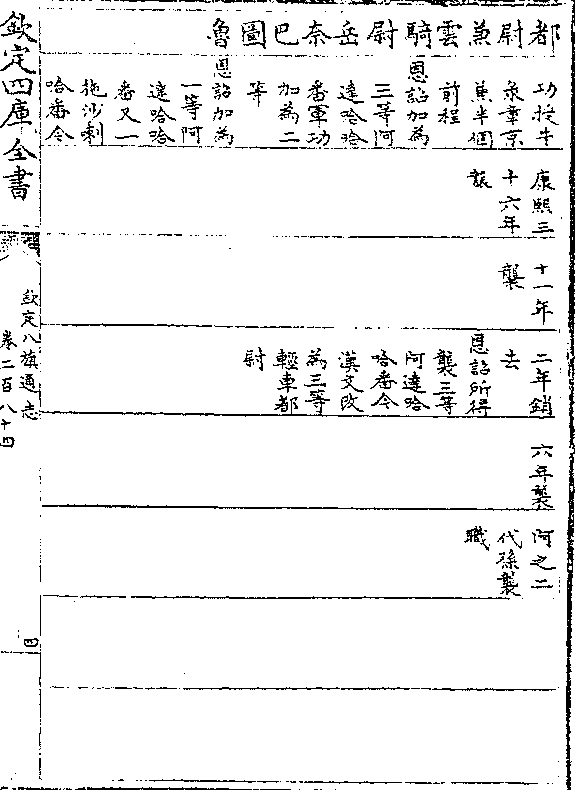 都尉兼雲騎尉岳奈巴圖魯
功授牛
彔章京
兼半個
前程
恩詔加為
三等阿
達哈哈
番軍功
加為二
等
恩詔加為
一等阿
達哈哈
番又一
拖沙喇
哈番今
康熙三
十六年
襲
十一年
襲
二年銷
去
恩詔所得
襲三等
阿達哈
哈番今
漢文改
為三等
輕車都
尉
六年襲
阿之二
代孫襲
職
欽定四庫全書
欽定八旗通志
卷二百八十四
四